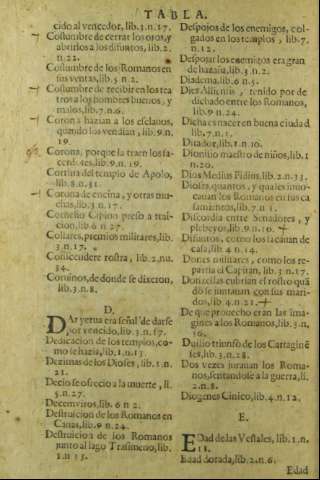 TABLA.
cido al vencedor, lib.3.n.17.
Costumbre de cerrar los ojos, y
abrirlos a los difuntos, lib.2.
n.22.
Costumbre de los Romanos en
sus ventas, lib.5 n.2.
Costumbre de recibir en los tea
tros a los hombres buenos, y
malos, lib.7.n.6.
Corona hazian a los esclauos,
quando los vendian, lib.9.n.
19.
Corona, porque la traen los sa-
cerdotes, lib.9.n.19.
Cortina del templo de Apolo,
lib.8.n.31.
Corona de encina, y otras mu-
chas, lib.3.n.17.
Cornelio Cipion preso a trai-
cion, lib.6 n.27.
Collares, premios militares, lib.
3.n.17.
Conscendere rostra, lib.2.nu.
34.
Cominos, de donde se dixeron,
lib.3.n.8.
D.
DAr yerua era señal de darse
por vencido, lib.3.n.17.
Dedicacion de los templos, co-
mo se hazia, lib.1.n.13.
Dezimas de los Dioses, lib.1.n.
21.
Decio se ofrecio a la muerte, li.
5.n.27.
Decemviros, lib.6 n 2.
Destruicion de los Romanos en
Canas, lib.9 n.24.
Destruicion de los Romanos
junto al lago Trasimeno, lib.
1.n 13.
Despojos de los enemigos, col-
gados en los templos, lib.7.
n.12.
Despojar los enemigos era gran
de hazaña, lib.3.n.2.
Diadema, lib.6 n.5.
Dies Alliensis, tenido por de
dichado entre los Romanos,
lib.9 n.24.
Dicha es nacer en buena ciudad
lib.7.n.1.
Dictador, lib.1.n.10.
Dionisio maestro de niños, lib.1
n.20.
Dios Medius Fidius, lib.2.n.33.
Dioses, quantos, y quales inuo-
cauan los Romanos en sus ca
samientos, lib.7 n 1.
Discordia entre Senadores, y
plebeyos, lib.9.n.10.
Difuntos, como los sacauan de
casa, lib 4 n.14.
Dones militares, como los re-
partia el Capitan, lib 3 n.17.
Donzellas cubrian el rostro quã
do se juntauan con sus mari-
dos, lib 4.n.21.
De que prouecho eran las ima-
gines a los Romanos, lib.3.n,
16.
Duilio triunfò de los Cartagine
ses, lib.3.n.28.
Dos vezes jurauan los Roma-
nos, sentandose a la guerra, li.
2.n.8.
Diogenes Cinico, lib.4.n.12.
E.
EDad de las Vestales, lib.1.n.
11.
Edad dorada, lib.2.n.6.
Edad